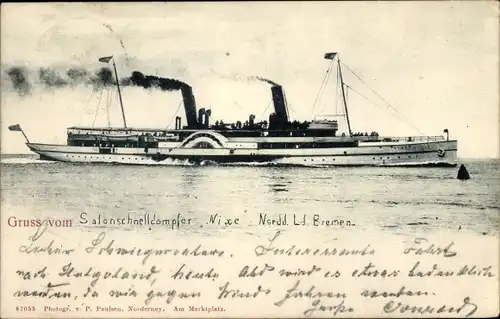 Gruss vom Salonschnelldampfer „Nixe“ Nordd. Ld. Bremen.
Lieber Schwiegervater. Interessante Fahrt
nach Helgoland, heute Abd wird es etwas bedenklich
werden, da wir gegen Wind fahren werden. Conrad
87055 Photogr. v. P. Paulsen, Norderney. Am Marktplatz.